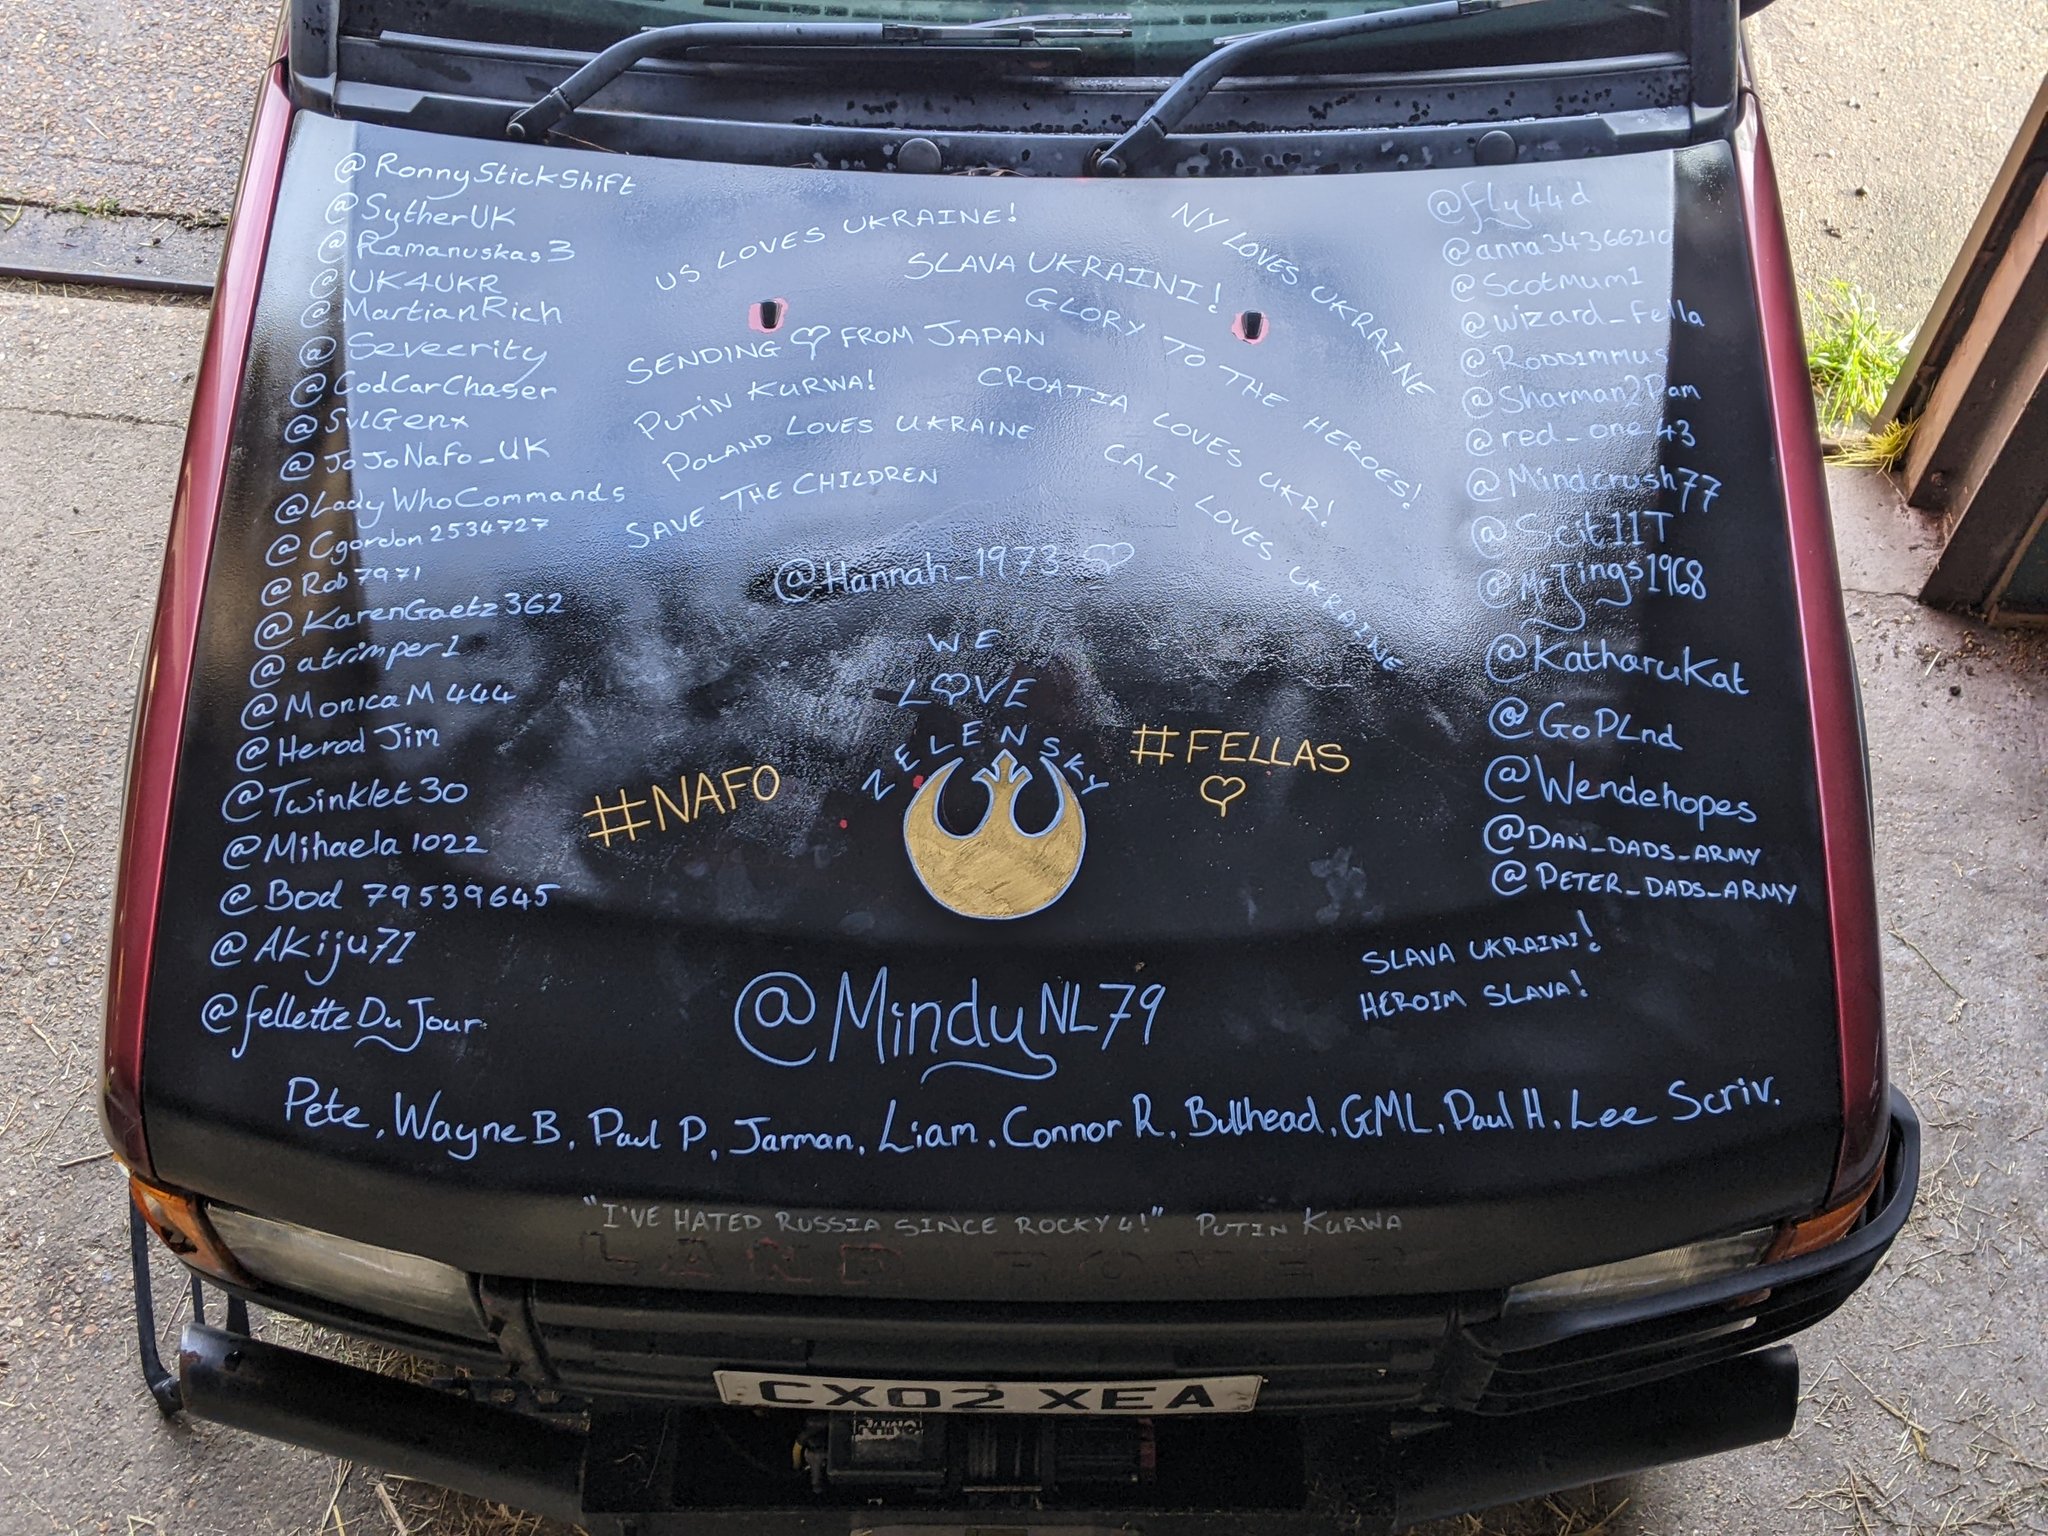 @RonnyStickShift
@SytherUK
@Ramanuskas3
@UK4UKR
@MartianRich
@Sevecrity
@CodCarChaser
@SvlGenx
@JoJoNafo_UK
@LadyWhoCommands
@Cgordon2534727
@Rob7971
@KarenGaetz362
@atrimper1
@MonicaM444
@Herod Jim
@Twinklet30
@Mihaela1022
@Bod 79539645
@AKiju71
@felletteDuJour
US LOVES UKRAINE!
SLAVA UKRAINI!
NY LOVES UKRAINE
GLORY TO THE HEROES!
SENDING ♡ FROM JAPAN
PUTIN KURWA!
CROATIA LOVES UKR!
POLAND LOVES UKRAINE
CALI LOVES UKRAINE
SAVE THE CHILDREN
@Hannah_1973 ♡
WE
LOVE
ZELENSKY
#NAFO
#FELLAS
♡
@MindyNL79
@fly44d
@anna34366210
@Scotmum1
@wizard_fella
@Roddimmus
@Sharman2Pam
@red_one43
@Mindcrush77
@Scit11T
@MrJings1968
@KatharuKat
@GoPLnd
@Wendehopes
@DAN_DADS_ARMY
@PETER_DADS_ARMY
SLAVA UKRAINI!
HEROIM SLAVA!
Pete, Wayne B, Paul P, Jarman, Liam, Connor R, Bullhead, GML, Paul H, Lee Scriv.
"I'VE HATED RUSSIA SINCE ROCKY 4!" PUTIN KURWA
LAND ROVER
CX02 XEA
RHINO